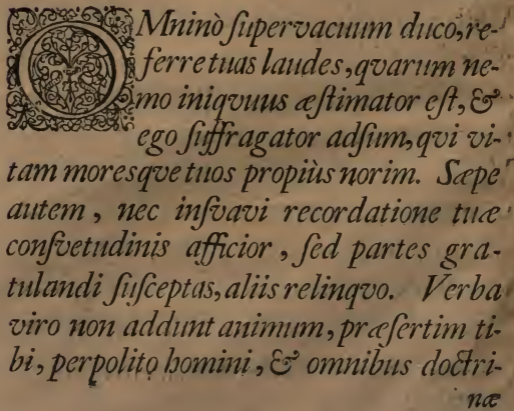 OMninò ſupervacuum duco, re-
ferre tuas laudes, qvarum ne-
mo iniqvuus æſtimator eſt, &
ego ſuffragator adſum, qvi vi-
tam moresqve tuos propiùs norim. Sæpe
autem, nec inſvavi recordatione tuæ
conſvetudinis afficior, ſed partes gra-
tulandi ſuſceptas, aliis relinqvo. Verba
viro non addunt animum, præſertim ti-
bi, perpolito homini, & omnibus doctri-
næ